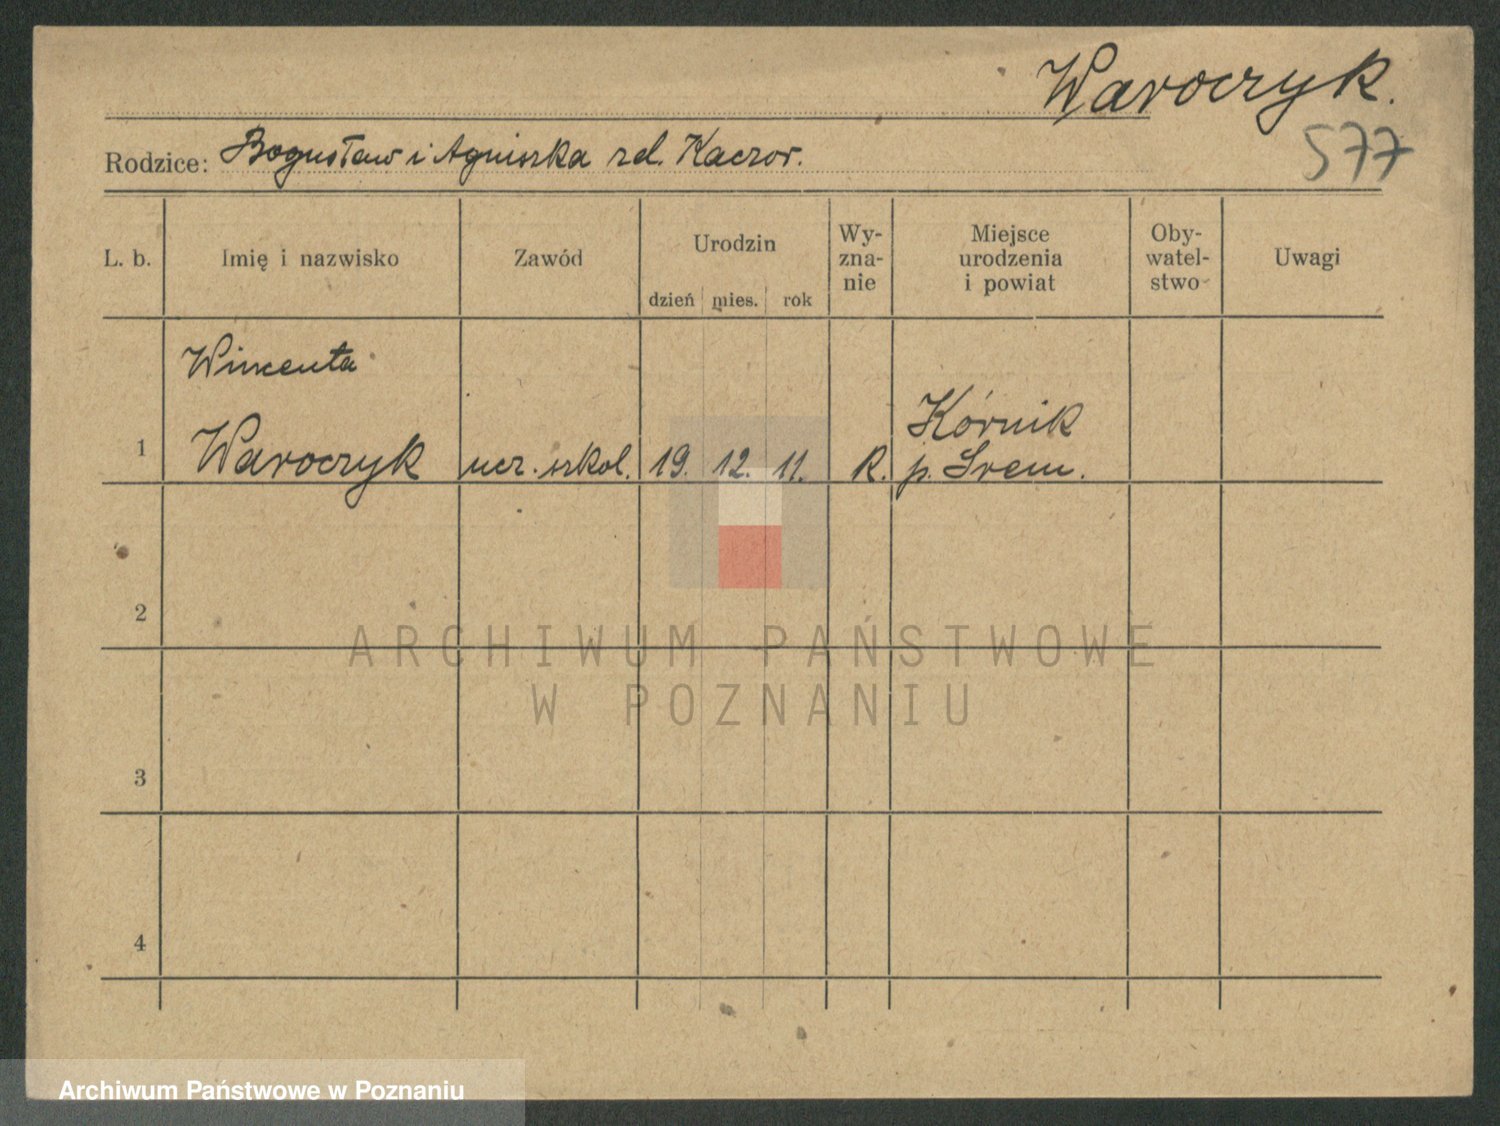 Waroczyk.
577
Rodzice: Bogusław i Agniszka zd. Kaczor.
L. b.
Imię i nazwisko
Zawód
Urodzin
dzień mies. rok
Wy-
zna-
nie
Miejsce
urodzenia
i powiat
Oby-
watel-
stwo
Uwagi
Wincenta
Kórnik
1 Waroczyk ucz. szkol. 19. 12. 11. R. p. Śrem.
2
3
4
ARCHIWUM PAŃSTWOWE
W POZNANIU
Archiwum Państwowe w Poznaniu